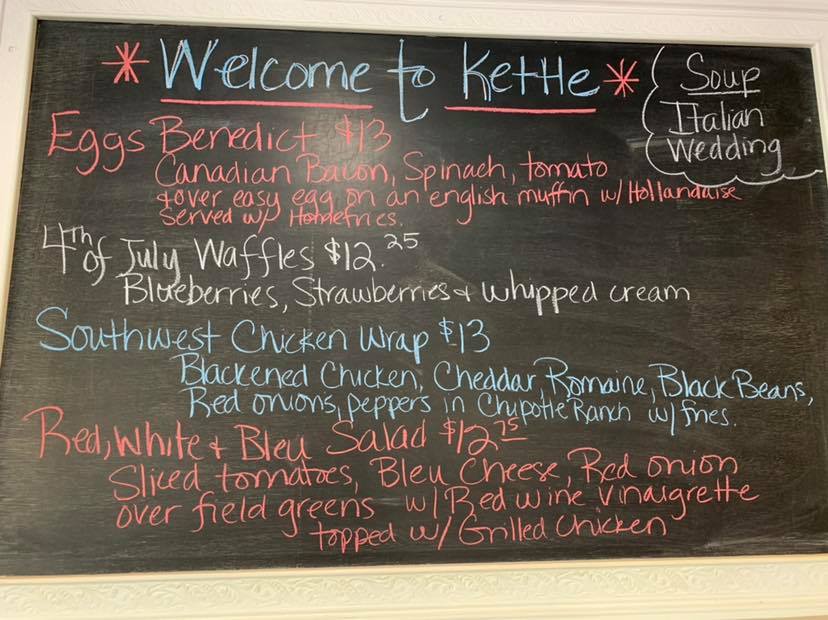 * Welcome to Kettle *
Soup
Italian
Wedding
Eggs Benedict $13
Canadian Bacon, Spinach, tomato
+ over easy egg on an english muffin w/ Hollandaise
Served w/ Homefries.
4th of July Waffles $12.25
Blueberries, Strawberries + whipped cream
Southwest Chicken Wrap $13
Blackened Chicken, Cheddar Romaine, Black Beans,
Red onions, peppers in Chipotle Ranch w/ fries.
Red, White + Bleu Salad $12.75
Sliced tomatoes, Bleu Cheese, Red onion
over field greens w/ Red wine vinaigrette
topped w/ Grilled Chicken